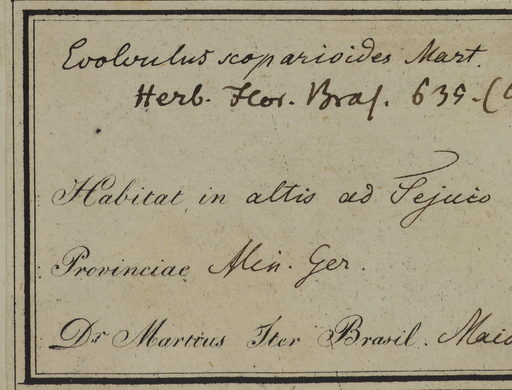 Evolvulus scoparioides Mart.
Herb. Flor. Bras. 639. (
Habitat in altis ad Tejuco
Provinciae Min. Ger.
Dr Martius Iter Brasil. Maio